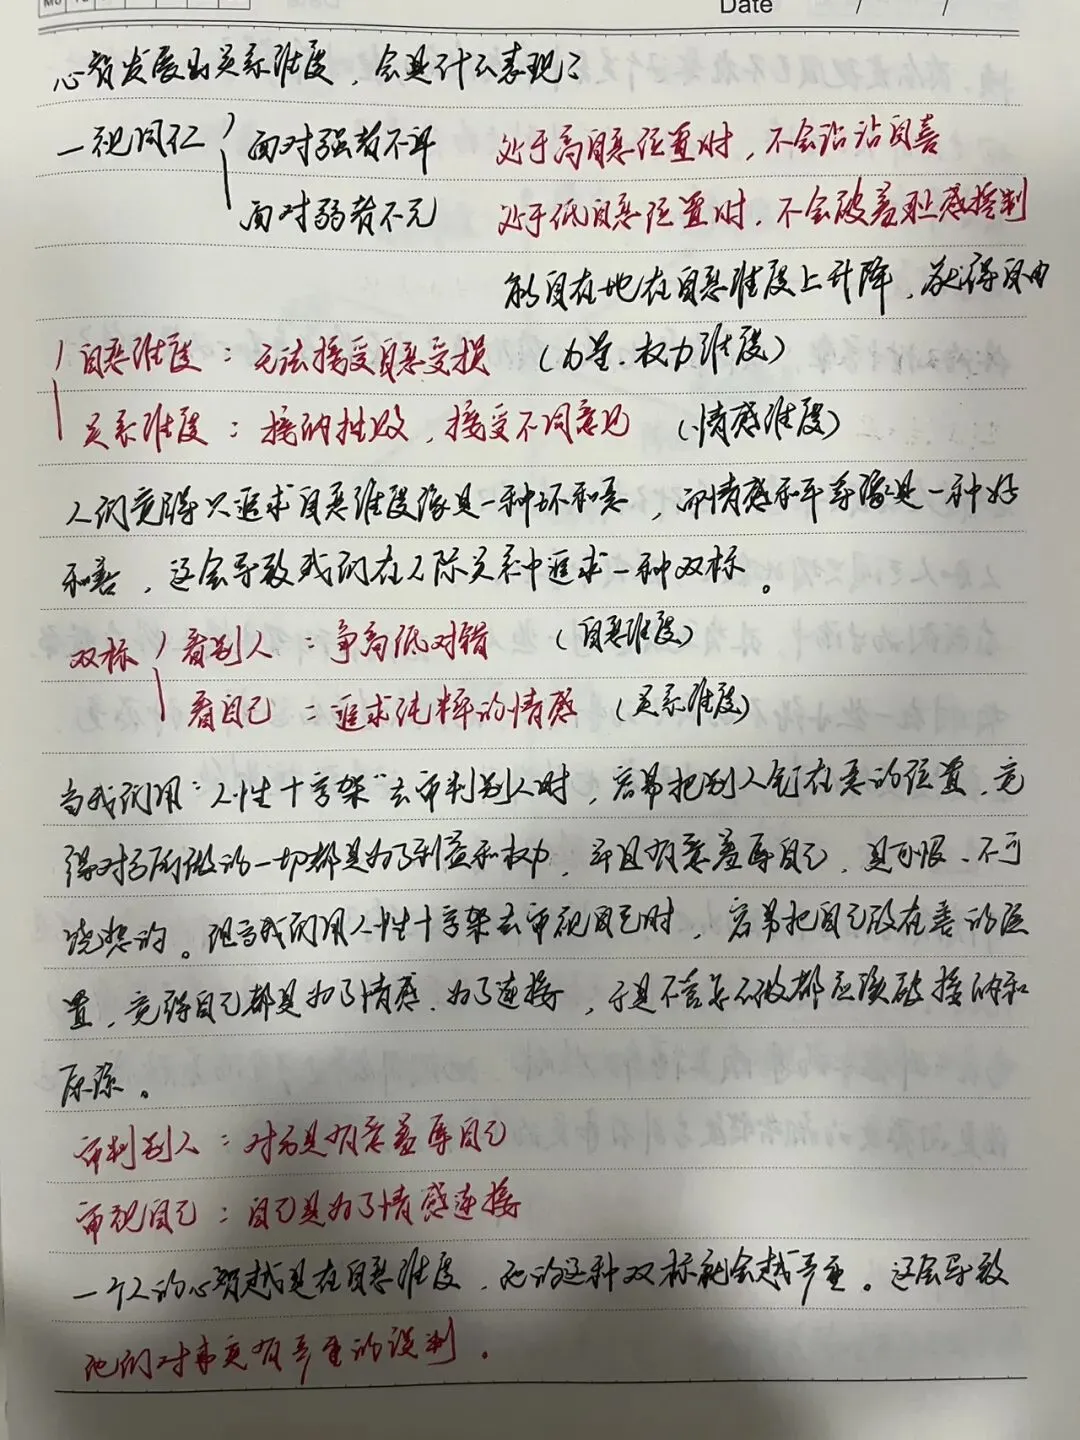 Date / /
心智发展到关系维度，会是什么表现？
一视同仁 面对强者不卑 处于高自恋位置时，不会沾沾自喜
面对弱者不亢 处于低自恋位置时，不会被羞耻感控制
能自在地在自恋维度上升降，获得自由
自恋维度：无法接受自恋受损（力量、权力维度）
关系维度：接纳挫败，接受不同意见（情感维度）
人们觉得只追求自恋维度像是一种坏和恶，而情感和平等像是一种好
和善，这会导致我们在人际关系中追求一种双标。
双标 看别人：争高低对错（自恋维度）
看自己：追求纯粹的情感（关系维度）
当我们用“人性十字架”去审判别人时，容易把别人钉在恶的位置，觉
得对方所做的一切都是为了利益和权力，并且有意羞辱自己，是可恨、不可
饶恕的。但当我们用人性十字架去审视自己时，容易把自己放在善的位
置，觉得自己都是为了情感、为了连接，于是不管怎么做都应该被接纳和
原谅。
审判别人：对方是有意羞辱自己
审视自己：自己是为了情感连接
一个人的心智越是在自恋维度，他的这种双标就会越严重。这会导致
他们对事实有严重的误判。